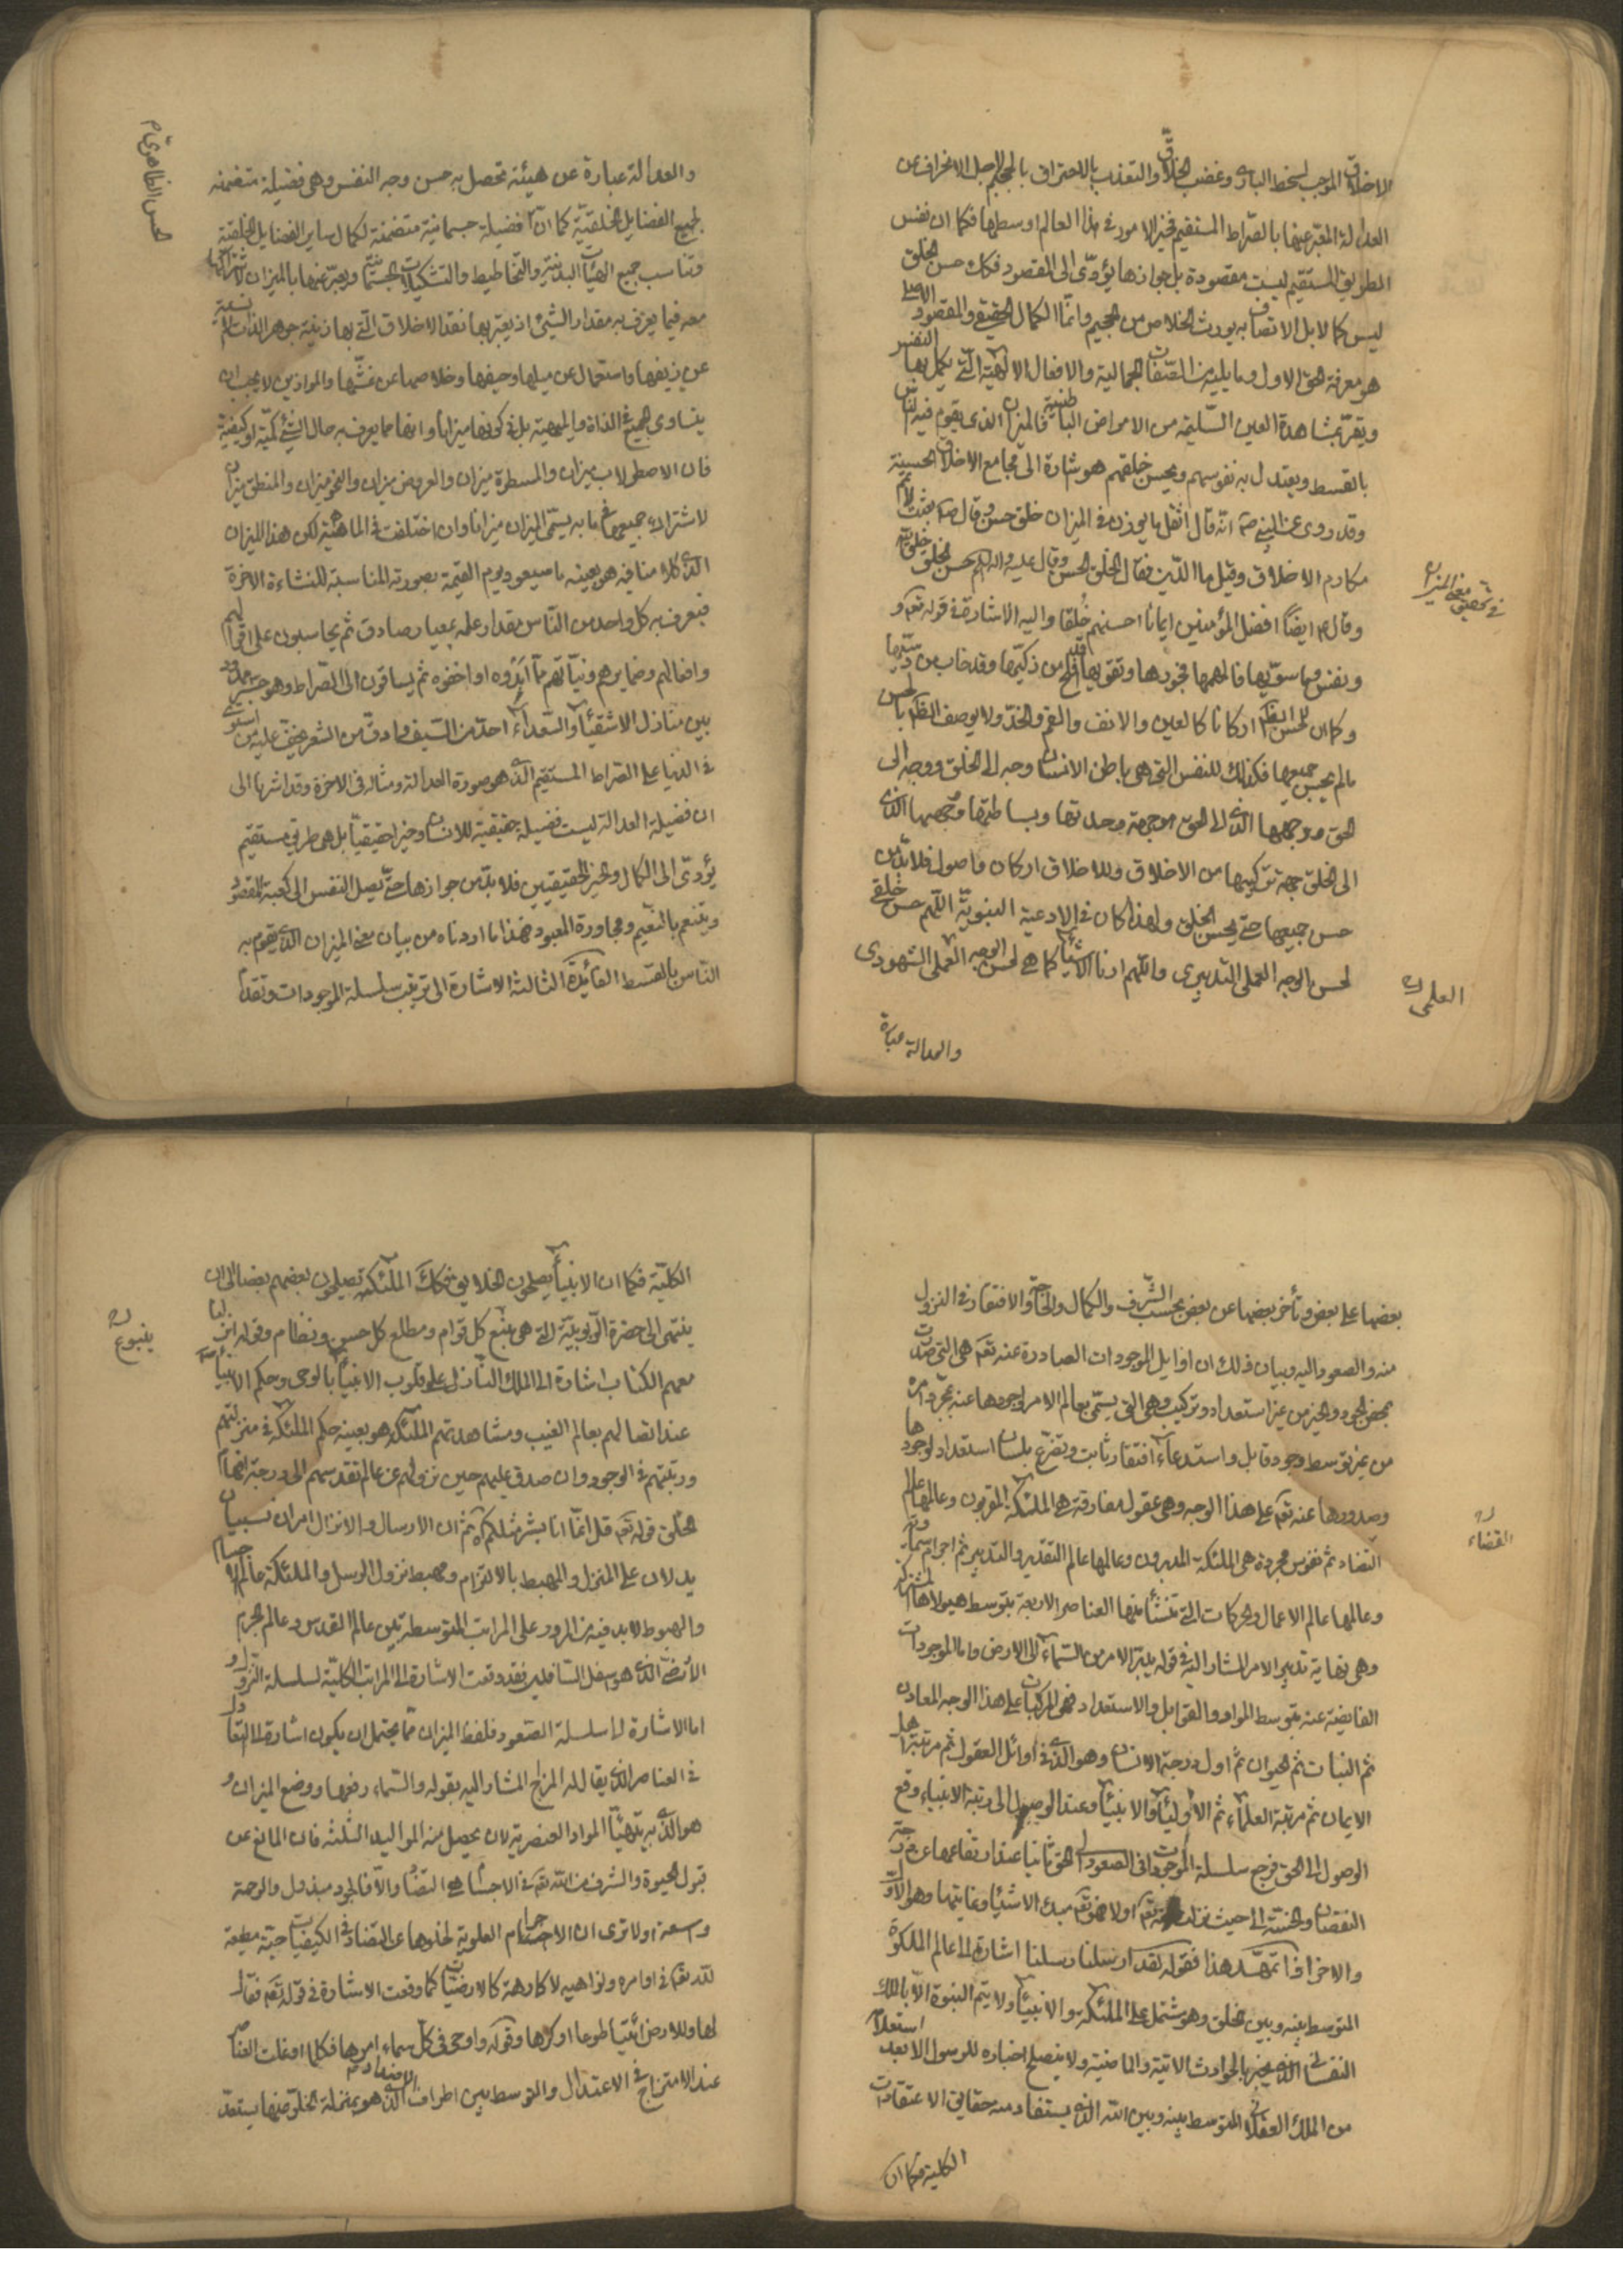 الاخلاق الموجب لسخط الباری وغضب الخلاق والتعذب بالاحتراق بالجحیم لاجل الانحراف عن
العدالة المعبر عنها بالصراط المستقیم فخیر الامور فی هذا العالم اوسطها فکما ان نفس
الطریق المستقیم لیست مقصودة بل جوازها یؤدی الی المقصود فکذلک حسن الخلق
لیس کمالا بل الاتصاف به یورث الخلاص من الجحیم وانما الکمال الحقیقی والمقصود الاصلی
هو معرفة الحق الاول وما یلیه من الصفات الجمالیة والافعال الالهیة التی یکمل بها النفس
ویقر بمشاهدة العین السلیمة من الامراض الباطنیة فالمیزان الذی یقوم فیه الناس
بالقسط ویعتدل به نفوسهم ویحسن خلقهم هو شارة الی مجامع الاخلاق الحسینة
وقد روی عن النبی ص انه قال اثقل ما یوزن فی المیزان خلق حسن وقال ص بعثت لاتمم
مکارم الاخلاق وقیل ما الدین فقال الخلق الحسن وقال علیه واله السلم حسن الخلق خلق الله
وقال ص ایضا افضل المؤمنین ایمانا احسنهم خلقا والیه الاشارة فی قوله تعه و
ونفس وما سوّیها فالهمها فجورها وتقویها قد افلح من زکیها وقد خاب من دسیها
وکما ان لحسن الظاهر ارکانا کالعین والانف والفم والخد ولا یوصف الظاهر بالحسن
مالم یحسن جمیعها فکذلک للنفس التی هی باطن الانسان وجه الی الخلق ووجه الی
الحق ووجهها الذی الی الحق هو جهة وحدتها وبساطتها ووجهها الذی
الی الخلق جهة ترکیبها من الاخلاق وللاخلاق ارکان واصول فلابد من
حسن جمیعها حتی یحسن الخلق ولهذا کان فی الادعیة النبویة اللهم حسن خلقی
لحسن الوجه العملی التدبیری واللهم ارنا الاشیاء کما هی لحسن الوجه العملی الشهودی
العلمی
فی تحقیق معنی المیزان
والعدالة عبارة
والعدالة عبارة عن هیئة تحصل به حسن وجه النفس وهی فضیلة متضمنة
لجمیع الفضایل الخلقیة کما ان فضیلة جسمانیة متضمنة لکمال سایر الفضایل الخلقیة
وتناسب جمیع الهیئات البدنیة والتخاطیط والتشکیلات الجسمیة ویعبر عنها بالمیزان لاشتراکها
معه فیما یعرف به مقدار الشیء اذ یعتبر بها نقد الاخلاق التی بها زینة جوهر الذات
عن زیفها واستعمال عن میلها وحیفها وخلاصها عن غشها والموازین لا یجب ان
یتساوی الجمیع فی الذات والمهیة بل فی کونها میزانا وانها مما یعرف به حال الشیء کمیة او کیفیة
فان الاصطرلاب میزان والمسطرة میزان والعروض میزان والنحو میزان والمنطق میزان
لاشتراک جمیعها فی ما به یسمی المیزان میزانا وان اختلفت فی الماهیة لکن هذا المیزان
الذی کلامنا فیه هو بعینه ما سیعود یوم القیمة بصورته المناسبة للنشاءة الاخرة
فیعرف به کل واحد من الناس مقدار علمه بمعیار صادق ثم یحاسبون علی اقوالهم
وافعالهم وضمایرهم ونیاتهم مما ابدوه او اخفوه ثم یساقون الی الصراط وهو جسر ممدود
بین منازل الاشقیاء والسعداء احد من السیف وادق من الشعر یخف علیه من استوی
فی الدنیا علی الصراط المستقیم الذی هو صورة العدالة ومثاله فی الاخرة وقد اشرنا الی
ان فضیلة العدالة لیست فضیلة حقیقیة للانسان وخیرا حقیقیا بل هی طریق مستقیم
یؤدی الی الکمال والخیر الحقیقیین فلابد من جوازها حتی یصل النفس الی کعبة المقصود
ویتنعم بالنعیم ومجاورة المعبود فهذا ما اردناه من بیان معنی المیزان الذی یقوم به
الناس بالقسط الفائدة الثالثة الاشارة الی ترتیب سلسلة الموجودات وتقدم
بعضها علی بعض وتأخر بعضها عن بعض بحسب الشرف والکمال والحاجة والافتقار فی النزول
منه والصعود الیه وبیان ذلک ان اوایل الموجودات الصادرة عنه تعه هی التی صدرت
بمحض الجود والخیر من غیر استعداد وترکیب وهی التی یسمی بعالم الامر لوجودها عنه بمجرد امره
من غیر توسط وجود قابل واستدعاء افتقار ثابت وتضرع بلسان استعداد لوجودها
وصدورها عنه تعه علی هذا الوجه وهی عقول مفارقة هی الملئکة المقربون وعالمها عالم
القضاء ثم نفوس مجردة هی الملئکة المدبرون وعالمها عالم التقدیر والتدبیر ثم اجرام سماویة
وعالمها عالم الاعمال والحرکات التی تنشأ منها العناصر الاربعة بتوسط هیولاها المشترکة
وهی نهایة تدبیر الامر المشار الیه فی قوله یدبر الامر من السماء الی الارض واما الموجودات
الفایضة عنه بتوسط المواد والقوابل والاستعداد فهی المرکبات علی هذا الوجه المعادن
ثم النبات ثم الحیوان ثم اول درجة الانسان وهو الذی فی اوائل العقول ثم مرتبة اهل
الایمان ثم مرتبة العلماء ثم الاولیاء والانبیاء وعند الوصول الی رتبة الانبیاء وقع
الوصول الی الحق فرجع سلسلة الموجودات فی الصعود الی الحق ثانیا عند ارتفاعها عن درجة
النقصان والخسة الی حیث نزلت منه تعه اولا فهو تعه مبدء الاشیاء وغایتها وهو الاول
والاخر اذا تمهد هذا فقوله لقد ارسلنا رسلنا اشارة الی عالم الملکوت
المتوسط بینه وبین الخلق وهو مشتمل علی الملئکة والانبیاء ولا یتم النبوة الا بالملک
النفسانی الذی یخبر بالحوادث الاتیة والماضیة ولا یصلح اخباره للرسول الا بعد استعلامه
من الملک العقلانی المتوسط بینه وبین الله الذی یستفاد منه حقایق الاعتقادات
القضاء
الکلیة فکما ان
الکلیة فکما ان الانبیاء یصلحون الخلایق فکذلک الملئکة تصلحون بعضهم بعضا الی ان
ینتهی الی حضرة الربوبیة التی هی منبع کل قوام ومطلع کل حسن ونظام وقوله انزلنا
معهم الکتاب اشارة الی الملک النازل علی قلوب الانبیاء بالوحی وحکم الانبیاء
عند اتصالهم بعالم الغیب ومشاهدتهم الملئکة هو بعینه حکم الملئکة فی منزلتهم
ورتبتهم فی الوجود وان صدق علیهم حین نزولهم عن عالم تقدسهم الی درجة افهام
الخلق قوله تعه قل انما انا بشر مثلکم ثم ان الارسال والانزال امران نسبیان
یدلان علی المنزل والمهبط بالالتزام ومهبط نزول الرسل والملئکة عالم الاجسام
والهبوط لابد فیه من المرور علی المراتب المتوسطة بین عالم القدس وعالم الجرم
الارضی الذی هو اسفل السافلین فقد وقعت الاشارة الی المراتب الکلیة لسلسلة النزول و
اما الاشارة الی سلسلة الصعود فلفظ المیزان مما یحتمل ان یکون اشارة الی التعادل
فی العناصر الذی یقال له المزاج المشار الیه بقوله والسماء رفعها ووضع المیزان و
هو الذی به یتهیأ المواد العنصریة لان یحصل منه الموالید الثلثة فان المانع عن
قبول الحیوة والشرف من الله تعه فی الاجسام هی التضاد والا فالجود مبذول والرحمة
واسعة اولا تری ان الاجرام العلویة لخلوها عن التضاد فی الکیفیات حیة مطیعة
لله تعه فی اوامره ونواهیه لا کارهة کالارضیات کما وقعت الاشارة فی قوله تعه فقال
لها وللارض ائتیا طوعا او کرها وقوله واوحی فی کل سماء امرها فکلما اوغلت العناصر
عند الامتزاج فی الاعتدال والتوسط بین اطراف الاضداد الذی هو بمنزلة الخلو عنها یستعد
ینبوع